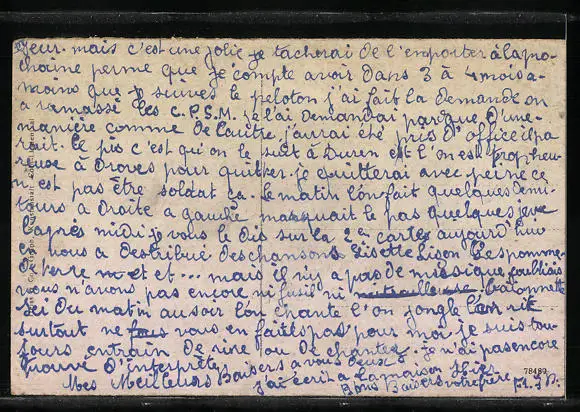 jeur. mais c'est une jolie je tacherai de l'emporter à la pro-
chaine perme que je compte avoir dans 3 à 4 mois a-
moins que je suives le peloton j'ai fait la demande on
a ramassé les C.P.S.M. je l'ai demandai parque d'une
manière comme de l'autre j'aurai été pris d'office il pa-
rait. Le pis c'est qu'on le suit à Duren et l'on est trop heu-
reuse à Droves pour quitter. je quitterai avec peine ce
n'est pas être soldat ça. le matin l'on fait quelques demi-
tours à droite a gauche marquait le pas quelques jeux
l'après midi je vous le dis sur la 2e cartes aujourd'hui
on nous a destribué des chansons Lisette Lison les pomme-
de terre et et... mais il n'y a pas de musique j'oubliais
nous n'avons pas encore ni fusil ni baïonnette
ici du matin au soir l'on chante l'on jongle l'on rit
surtout ne vous en faites pas pour moi je suis tou-
jours entrain de rire ou de chanter. je n'ai pas encore
trouvé d'interprète
Mes Meilleurs Baisers a vous deux
j'ai écrit a la maison hier
Bons Baisers votre frère
78489